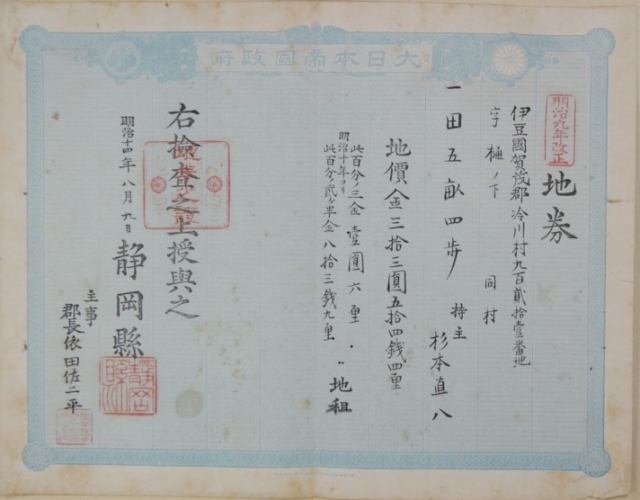 大日本帝國政府
明治九年改正
地券
伊豆國賀茂郡冷川村九百貳拾壹番地
字樋ノ下　同村
一田五畝四歩　持主　杉本直八
地價金三拾三圓五拾四錢四厘
此百分ノ三金壹圓六厘　地租
明治十年ヨリ
此百分ノ貳ヶ半金八拾三錢九厘　〃
右檢査之上授與之
明治十四年八月九日　静岡縣
主事
郡長依田佐二平